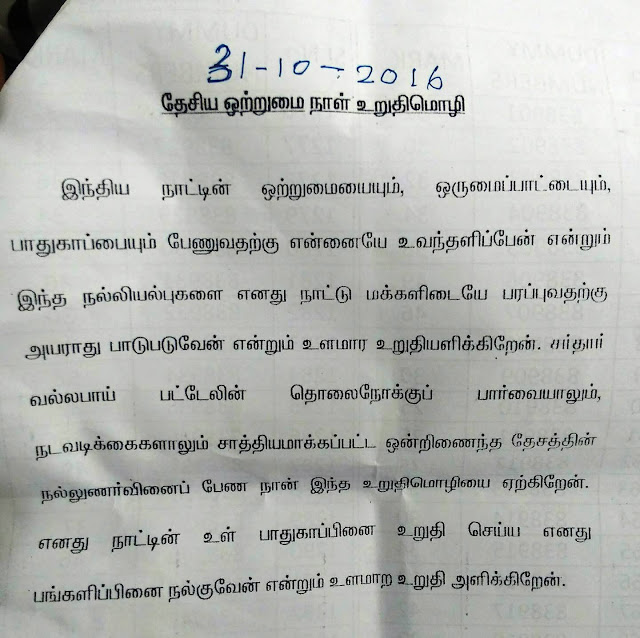 31-10-2016
தேசிய ஒற்றுமை நாள் உறுதிமொழி
இந்திய நாட்டின் ஒற்றுமையையும், ஒருமைப்பாட்டையும்,
பாதுகாப்பையும் பேணுவதற்கு என்னையே உவந்தளிப்பேன் என்றும்
இந்த நல்லியல்புகளை எனது நாட்டு மக்களிடையே பரப்புவதற்கு
அயராது பாடுபடுவேன் என்றும் உளமார உறுதியளிக்கிறேன். சர்தார்
வல்லபாய் பட்டேலின் தொலைநோக்குப் பார்வையாலும்,
நடவடிக்கைகளாலும் சாத்தியமாக்கப்பட்ட ஒன்றிணைந்த தேசத்தின்
நல்லுணர்வினைப் பேண நான் இந்த உறுதிமொழியை ஏற்கிறேன்.
எனது நாட்டின் உள் பாதுகாப்பினை உறுதி செய்ய எனது
பங்களிப்பினை நல்குவேன் என்றும் உளமாற உறுதி அளிக்கிறேன்.